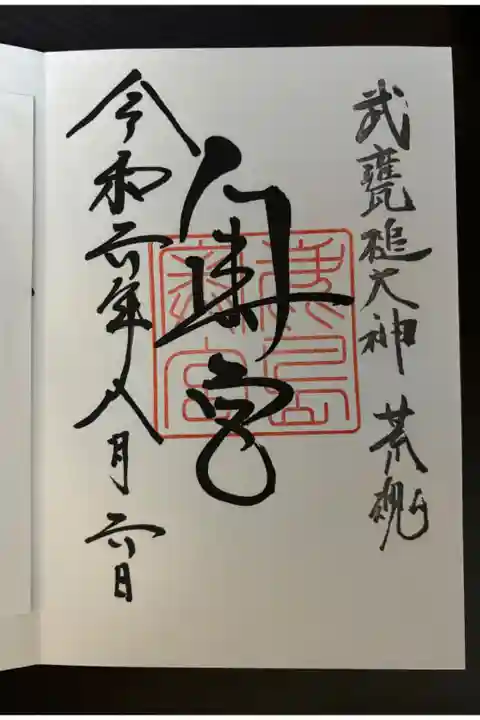 武甕槌大神 荒魂
奥宮
鹿島奥宮
令和六年八月六日